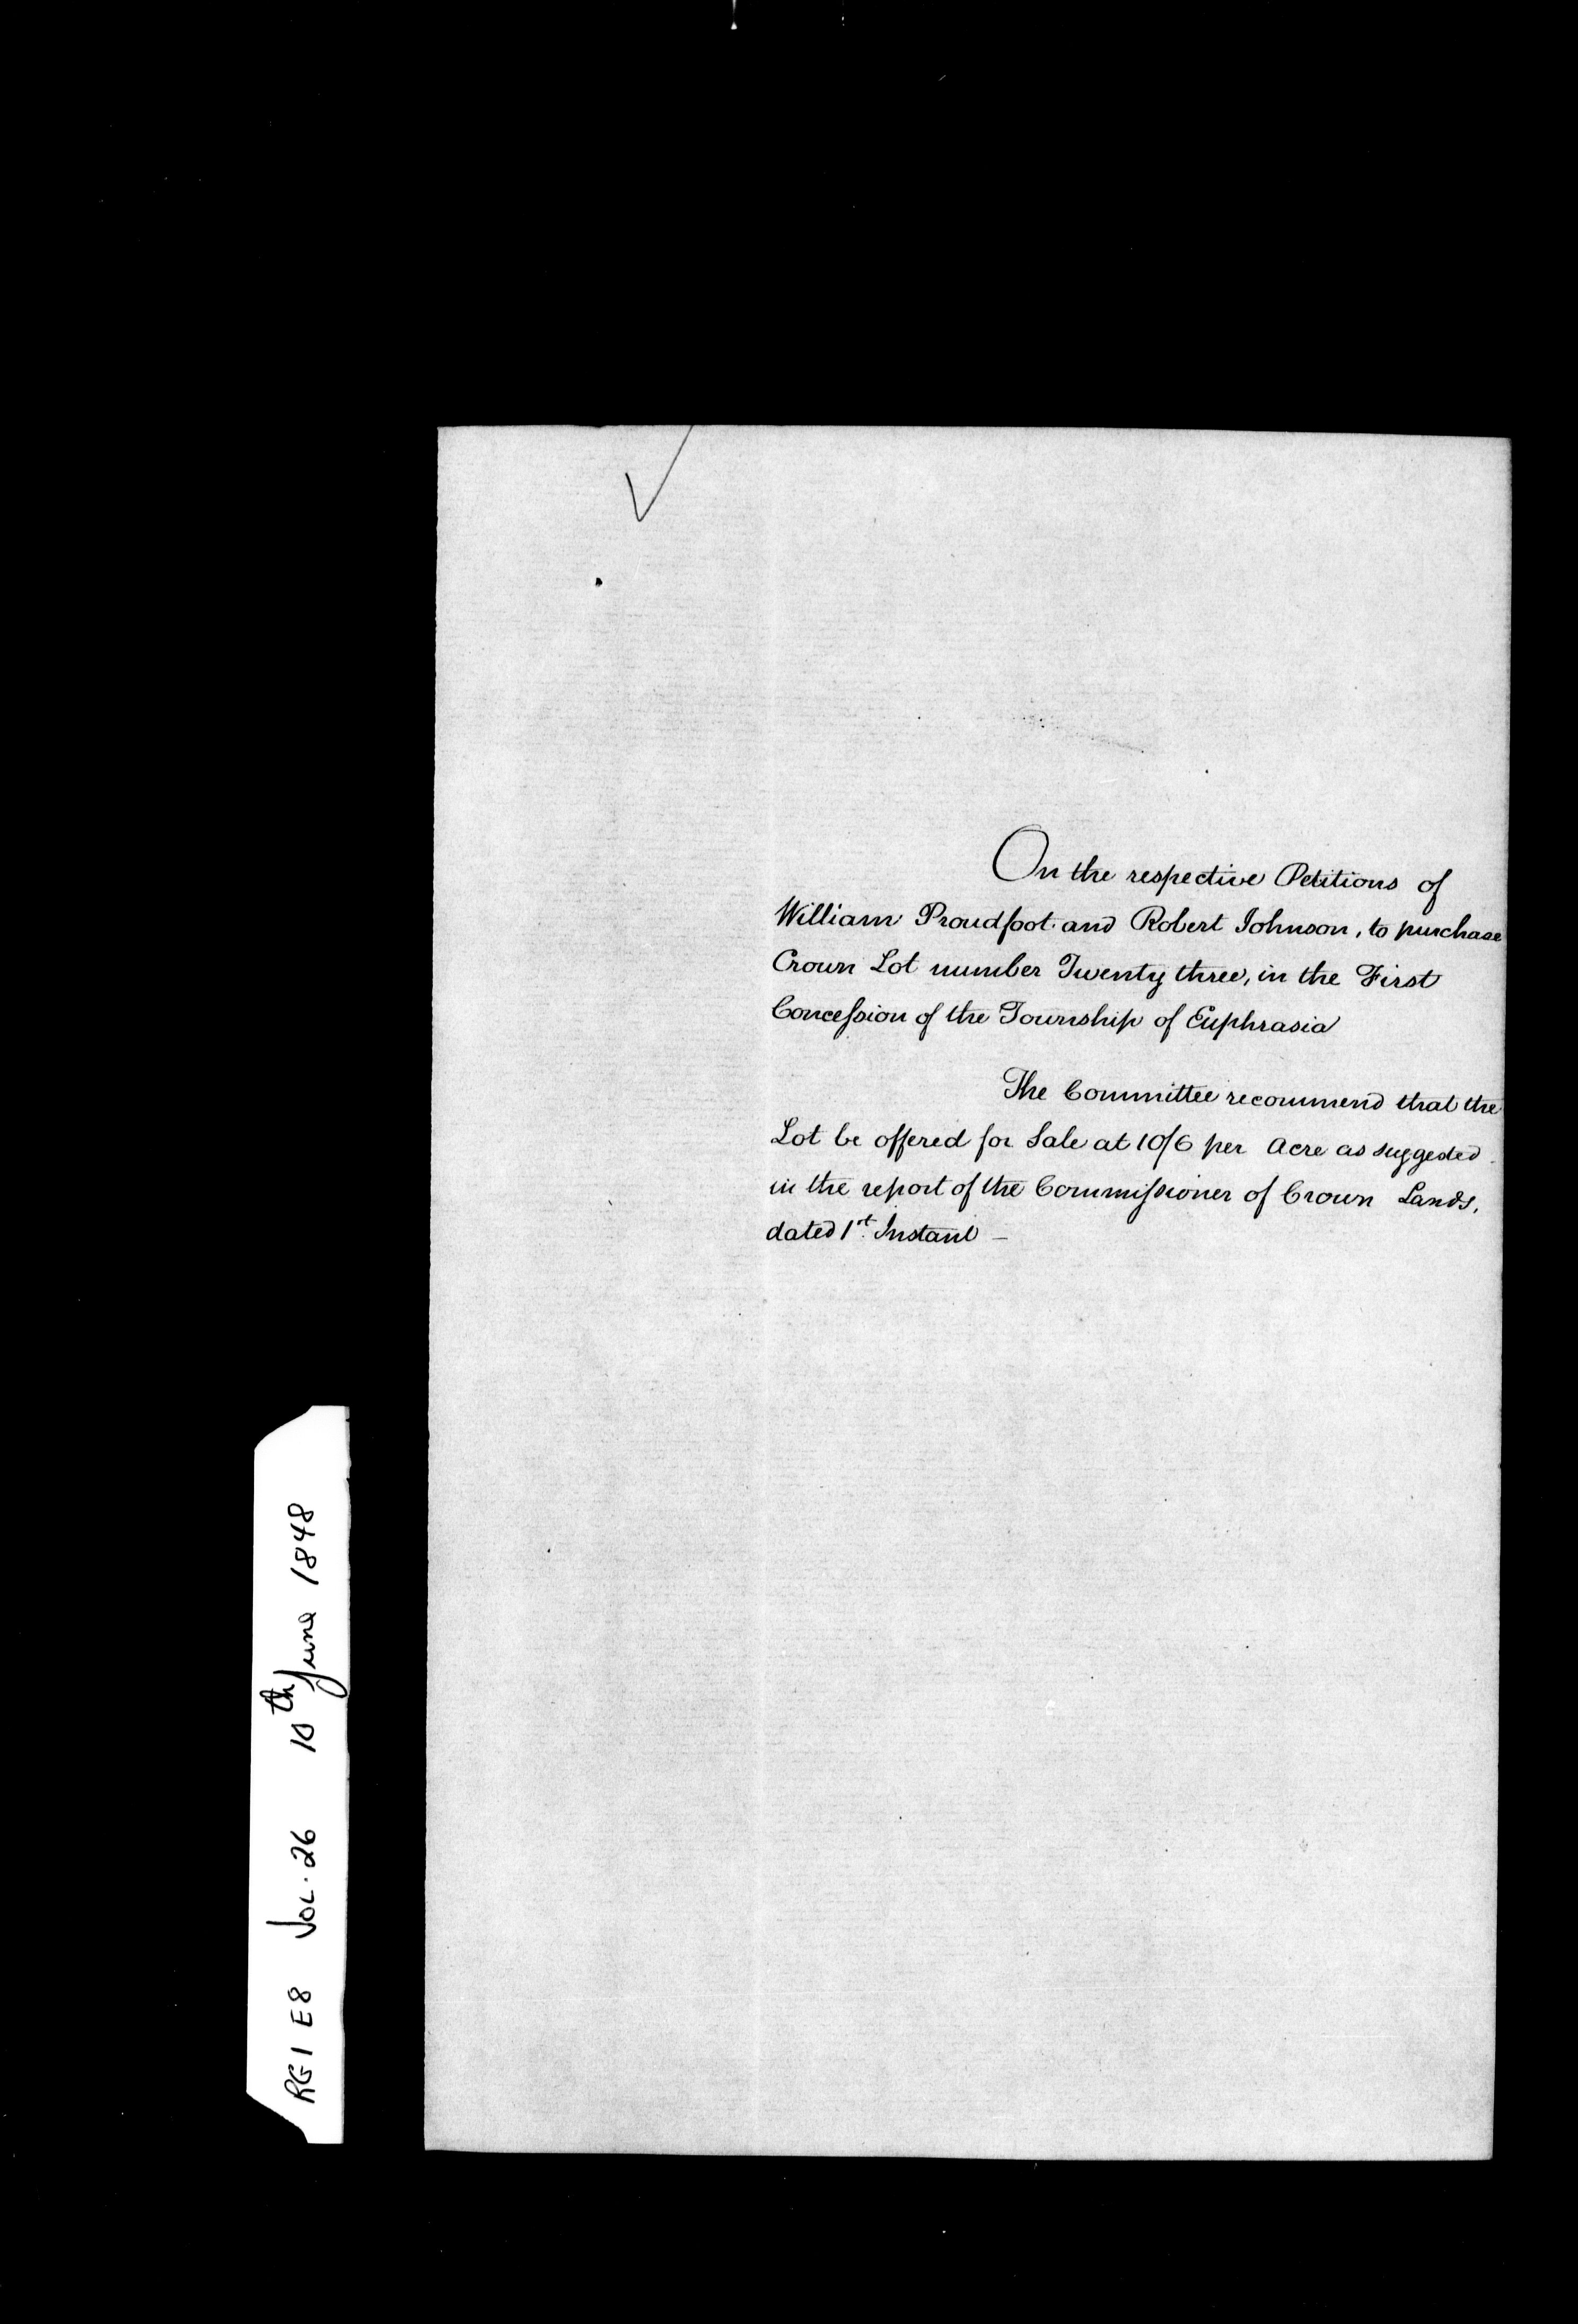 On the respective Petitions of
William Proudfoot and Robert Johnson, to purchase
Crown Lot number Twenty three, in the First
Concession of the Township of Euphrasia
The Committee recommend that the
Lot be offered for Sale at 10/6 per Acre as suggested
in the report of the Commissioner of Crown Lands,
dated 1st. Instant –
RG1 E8 VOL. 26 10th June 1848